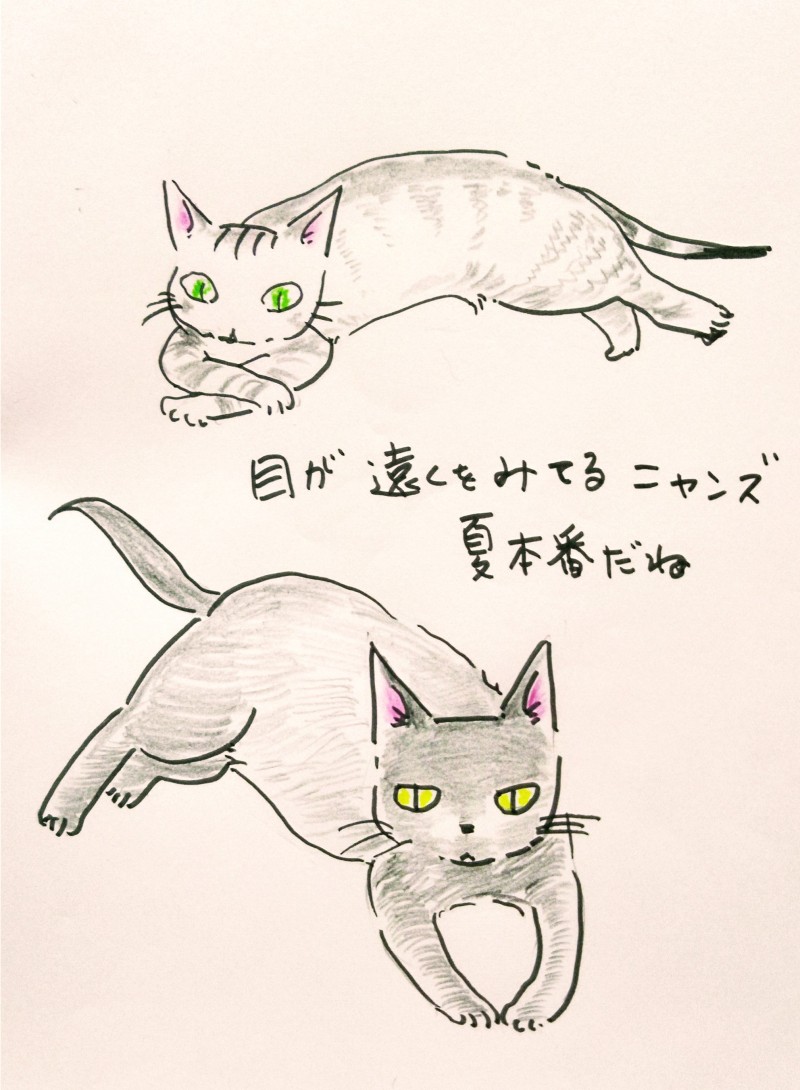 目が 遠くをみてる ニャンズ
夏本番だね